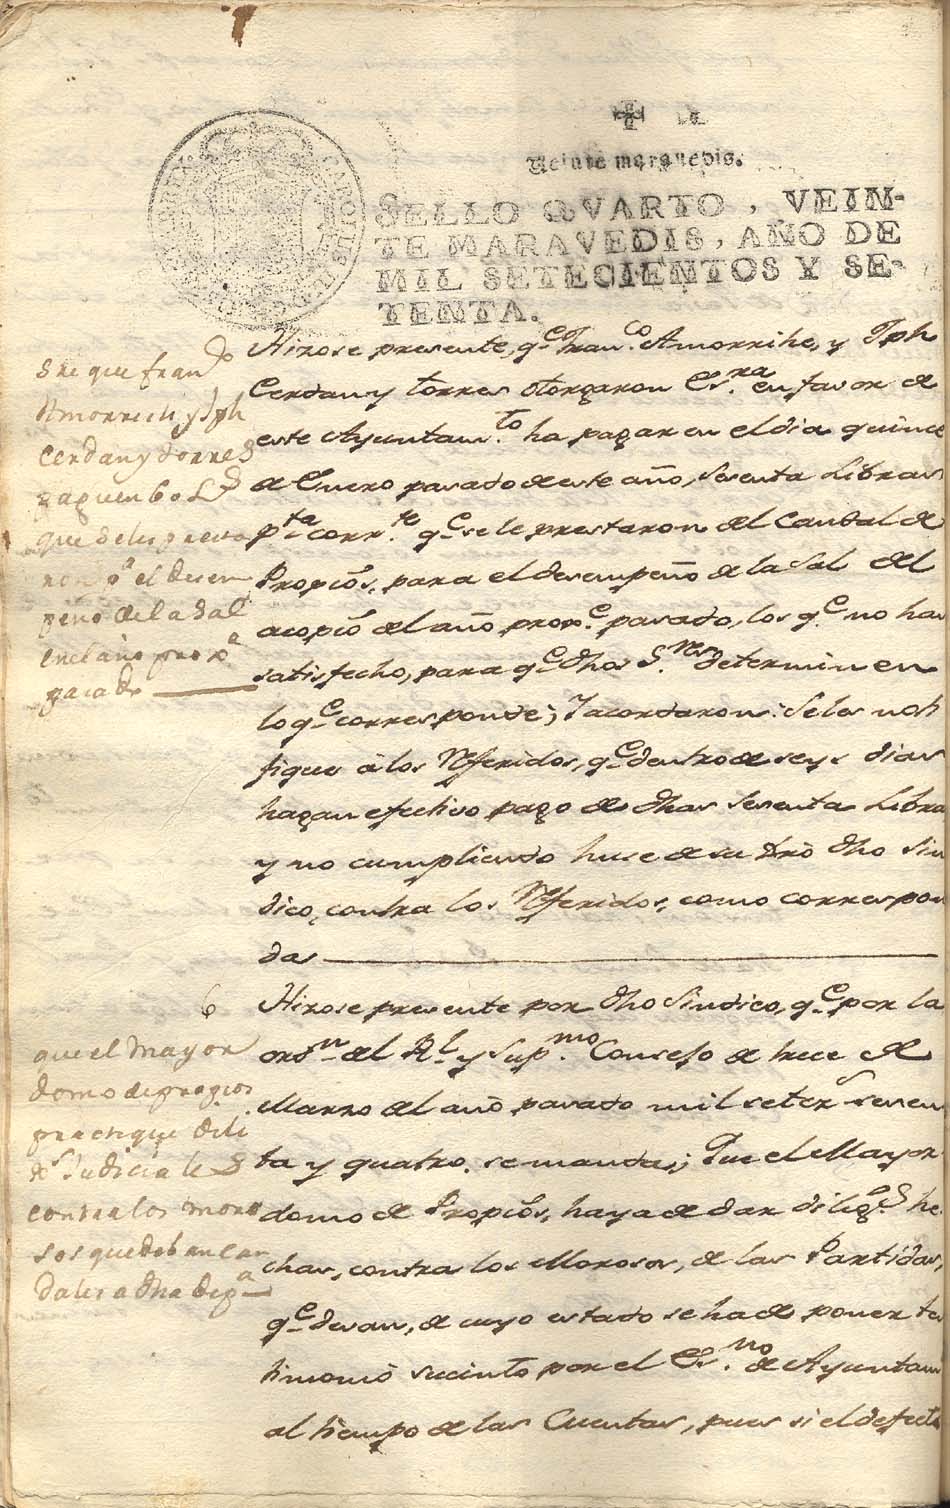 Veinte marauedis.
SELLO QVARTO, VEIN-
TE MARAVEDIS, AÑO DE
MIL SETECIENTOS Y SE-
TENTA.
Hizose presente, q.e Fran.co Amorrihe, y Jph
Cerdan y torres otorgaron Es.ra en favor de
este Ayuntam.to ha pagar en el dia quince
de Enero pasado de este año, sesenta Libras
p.ta corr.te q.e se le prestaron del Caudal de
Propios, para el desempeño de la Sal del
acopio del año prox.e pasado, los q.e no han
satisfecho, para q.e dhos S.res determinen
lo q.e corresponde; Y acordaron: Se les noti
fique à los Referidos, q.e dentro de seys dias
hagan efectivo pago de dhas sesenta Libras
y no cumpliendo huse de su dro dho Sin
dico, contra los Referidos, como correspon
da
Hizose presente por dho Sindico, q.e por la
orn.n del R.l y Sup.mo Consejo de trece de
Marzo del año pasado mil seter sesen
ta y quatro, se manda; Que el Mayor
domo de Propios, haya de dar dilig.s he
chas, contra los Morosos, de las Partidas,
q.e devan, de cuyo estado se ha de poner tes
timonio sucinto por el Es.no de Ayuntam
al tiempo de las Cuentas, pues si el defecto
Sre que fran.do
Amorrich y Jph
Cerdan y torres
paguen 60 L.s
que se les presta
ron p.a el desem
peño de la Sal
en el año prox.o
pasado
6
que el Mayor
domo de propios
practique dili
x.s Judiciales
contra los moro
sos que deban cau
dales a dha Dep.a